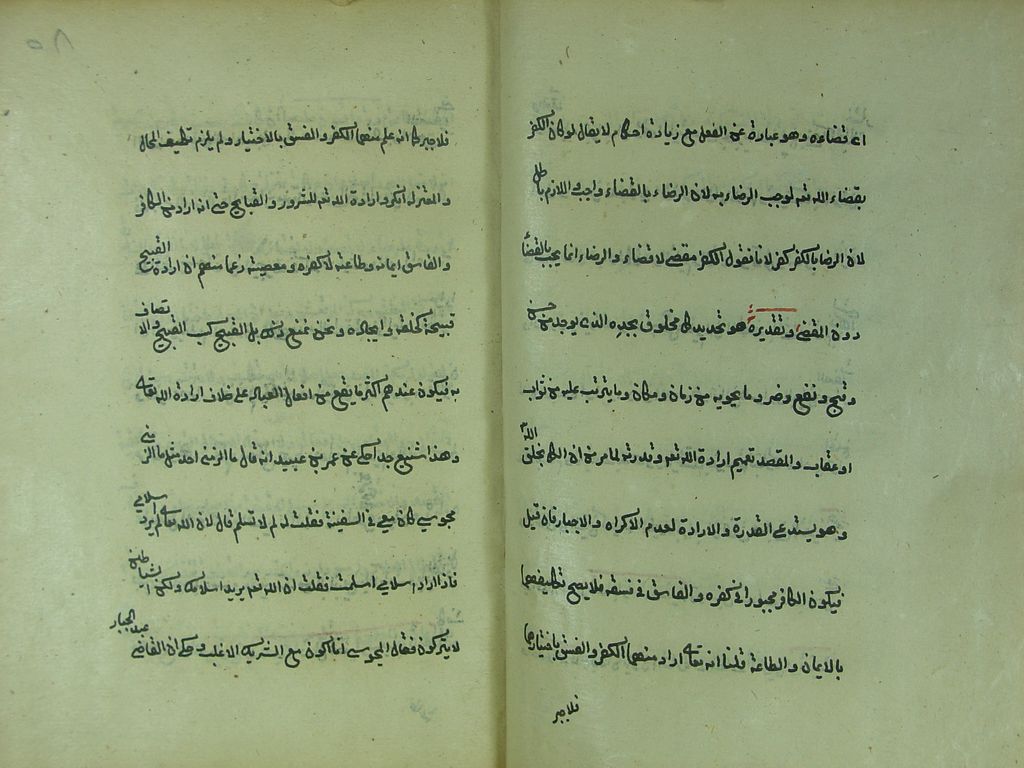 اى قضاءه وهو عبارة عن الفعل مع زيادة احكام لا يقال لو كان الكفر
بقضاء الله تعـ لوجب الرضاء به لان الرضاء بالقضاء واجب واللازم باطل
لان الرضا بالكفر كفر لانا نقول الكفر مقضى لا قضاء والرضاء انما يجب بالقضاء
دون المقضى وتقديره هو تحديد كل مخلوق بحده الذى يوجد من حسن
وقبح ونفع وضر وما يحويه من زمان ومكان وما يترتب عليه من ثواب
او عقاب والمقصد تعميم ارادة الله تعـ وقدرته لما مر من ان الكل بخلق الله
وهو يستدعى القدرة والارادة لعدم الاكراه والاجبار فان قيل
فيكون الكافر مجبورا فى كفره والفاسق فى فسقه فلا يصح تكليفهما
بالايمان والطاعة قلنا انه تعالى اراد منهما الكفر والفسق باختيارهما
فلا جبر
٨٥
فلا جبر كما انه علم منهما الكفر والفسق بالاختيار ولم يلزم تكليف المحال
والمعتزله انكروا ارادة الله تعـ للشرور والقبايح حتى انه اراد من الكافر
والفاسق ايمانه وطاعته لا كفره ومعصيته زعما منهم ان ارادة القبيح
قبيحة كخلقه وايجاده ونحن نمنع ذلك بل القبيح كسب القبيح والاتصاف
به فيكون عندهم اكثر ما يقع من افعال العباد على خلاف ارادة الله تعالى
وهذا شنيع جدا حكى عن عمر بن عبيد انه قال ما الزمنى احد مثل ما الزمنى
مجوسى كان معى فى السفينة فقلت له لم لا تسلم قال لان الله تعالى لم يرد اسلامى
فاذا اراد اسلامى اسلمت فقلت ان الله تعـ يريد اسلامك ولكن الشياطين
لا يتركونك فقال المجوسى انا اكون مع الشريك الاغلب وحكى ان القاضى عبد الجبار